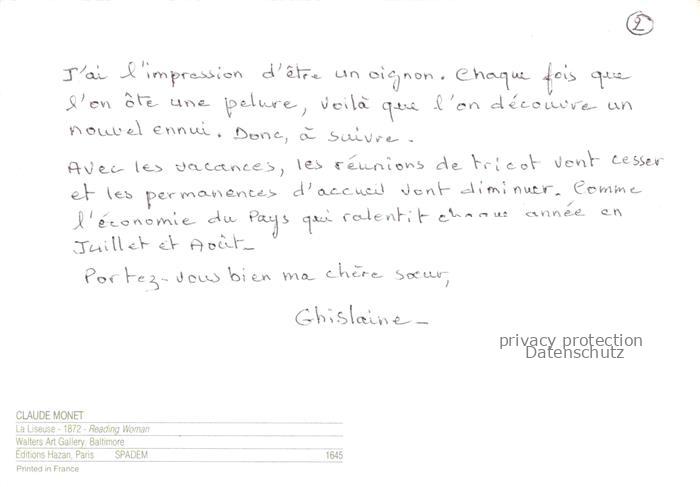 2
J'ai l'impression d'être un oignon. Chaque fois que
l'on ôte une pelure, voilà que l'on découvre un
nouvel ennui. Donc, à suivre.
Avec les vacances, les réunions de tricot vont cesser
et les permanences d'accueil vont diminuer. Comme
l'économie du Pays qui ralentit chaque année en
Juillet et Août_
Portez-vous bien ma chère sœur,
Ghislaine_
privacy protection
Datenschutz
CLAUDE MONET
La Liseuse - 1872 - Reading Woman
Walters Art Gallery, Baltimore
Éditions Hazan, Paris SPADEM 1645
Printed in France